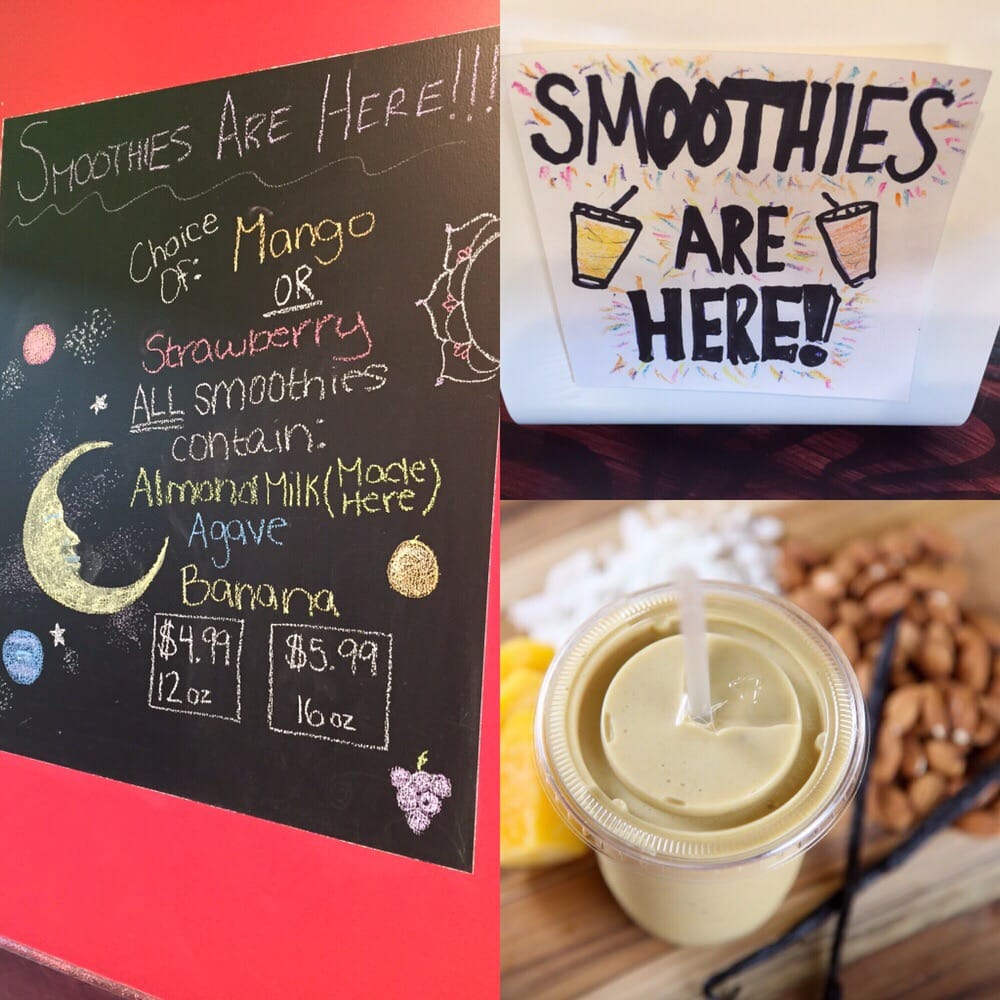 SMOOTHIES ARE HERE!!!
Choice Mango
Of:
OR
Strawberry
ALL smoothies
contain:
Almond Milk (Made
Here)
Agave
Banana
$4.99
12 oz
$5.99
16 oz
SMOOTHIES
ARE
HERE!!